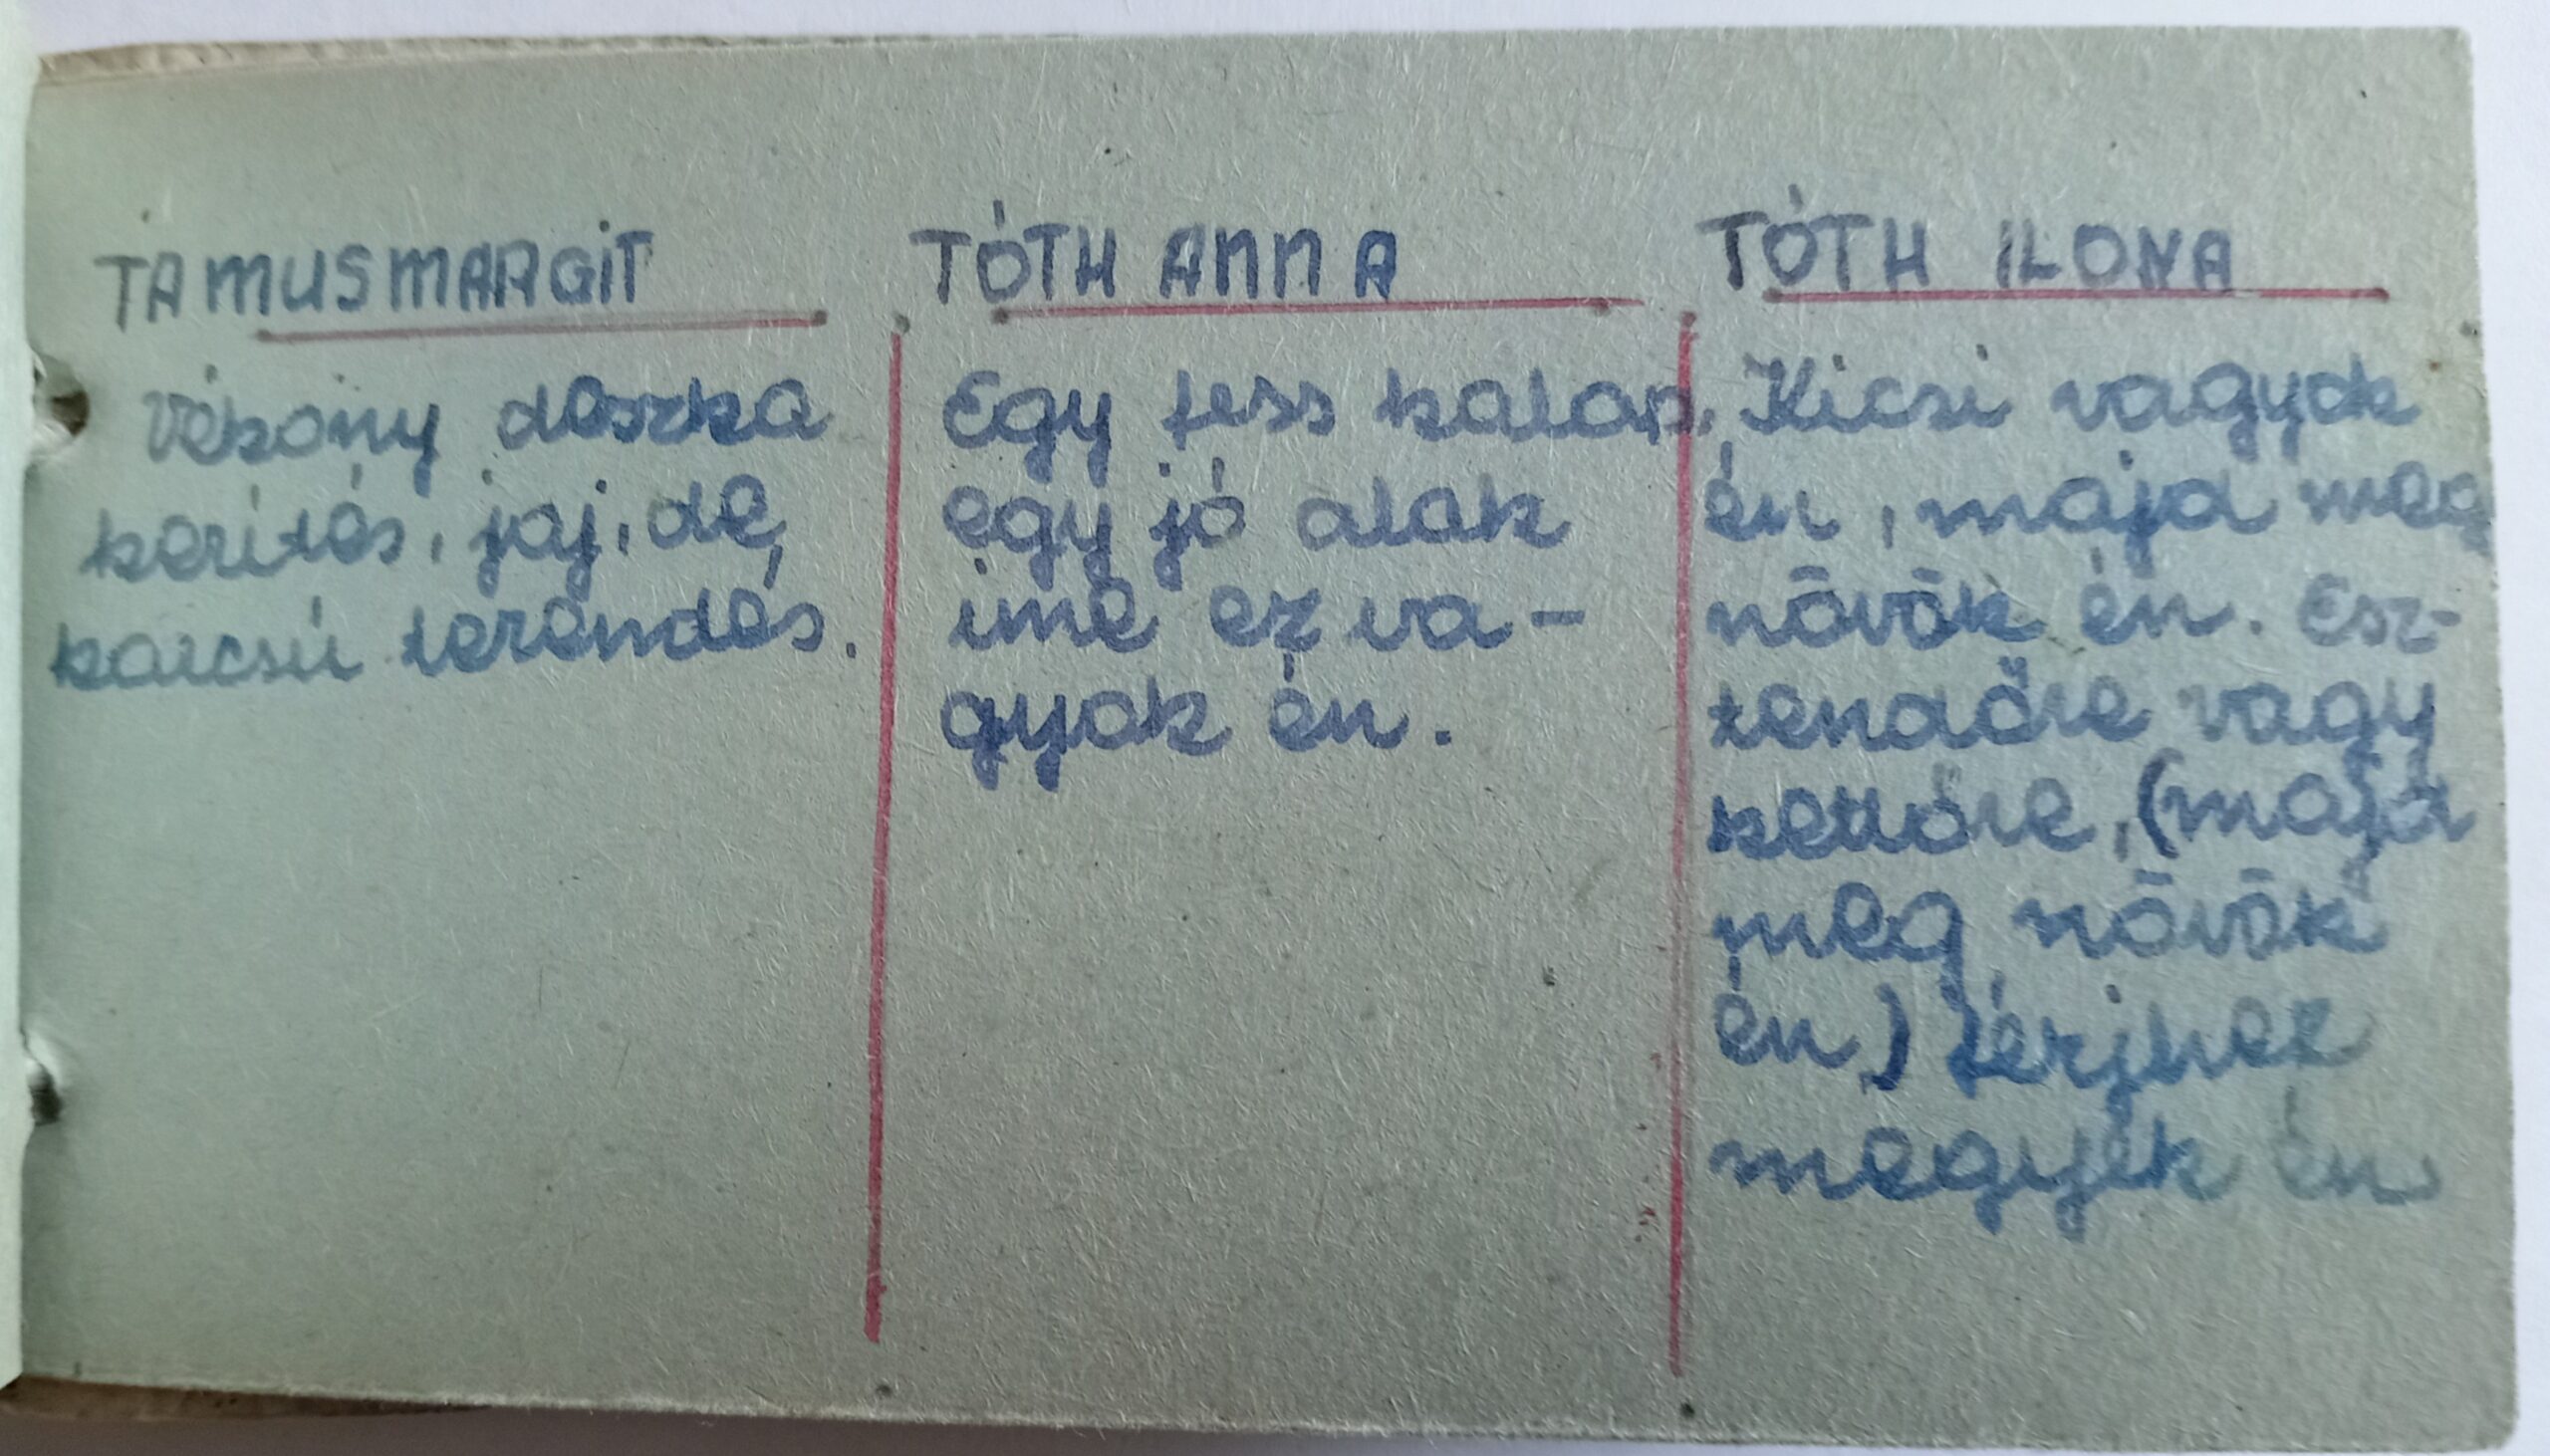 TAMUS MARGIT
Vékony deszka
kerítés, jaj, de
karcsú teremtés.
TÓTH ANNA
Egy fess kalap,
egy jó alak
ime ez va-
gyok én.
TÓTH ILONA
Kicsi vagyok
én, majd meg
növök én. Esz-
tendőre vagy
kettőre, (majd
meg növök
én) férjhez
megyek én